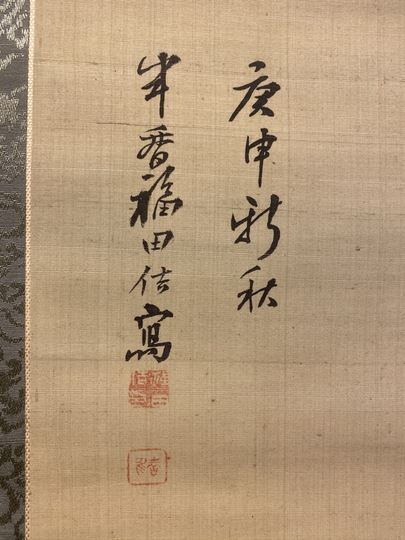 庚申新秋
半香福田佶寫